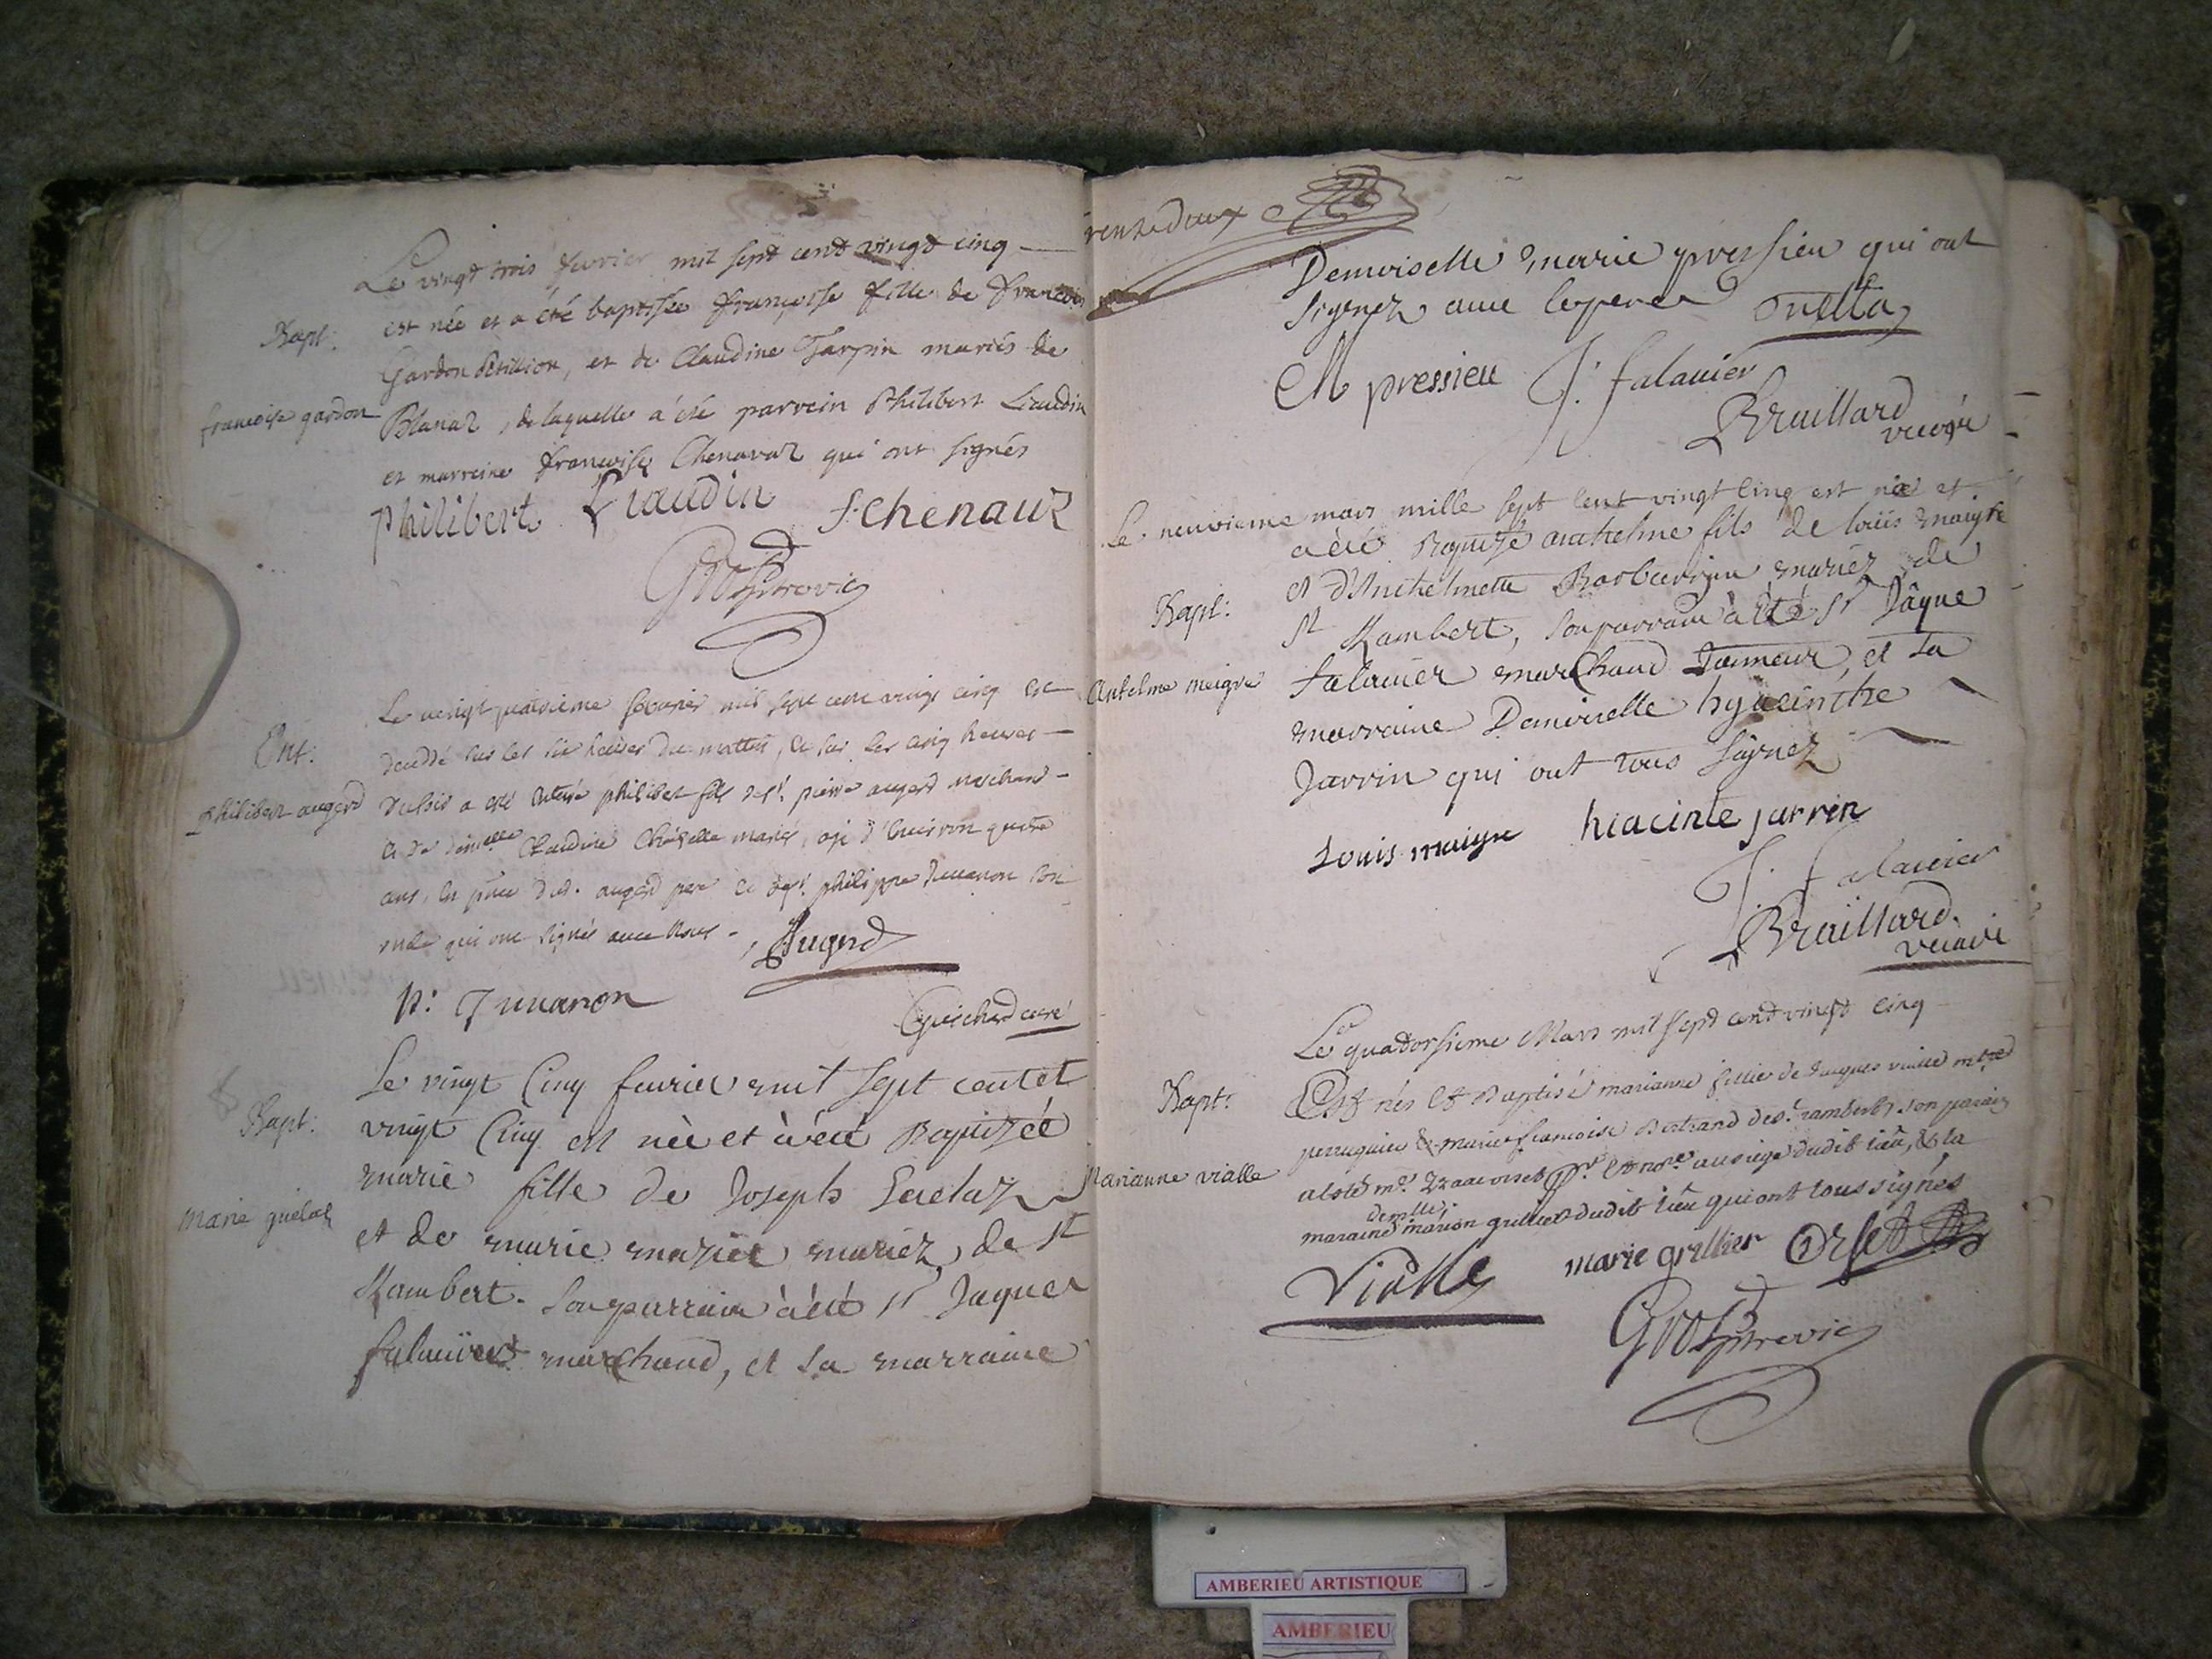 Le vingt trois fevrier mil sept cent vingt cinq
est née et a été baptisée françoise fille de francois
Bapt:
Gardon Petillion, et de Claudine Tarpin mariés de
francoise gardon
Blanaz, de laquelle a été parrein Philibert Liaudin
et marreine francoise Chenavaz qui ont signés
philibert Liaudin f. chenauz
Le vingt quatrieme fevrier mil sept cent vingt cinq est
Ent:
decedé sur les six heures du matin, et sur les cinq heures
philibert augerd
du soir a esté enteré philibert fils de sr. pierre augerd marchand
et de damelle Claudine mariés, agé d'environ quatre
ans, en pnce dud. augerd pere et de sr. philippe
qui ont signés avec nous
Augerd
Guichard curé
Le vingt cinq fevrier mil sept cent et
Bapt:
vingt cinq est née et a été Baptizée
marie fille de Joseph
marie guelaz
et de marie mariez de st
Rambert. Son parrain a été sr Jaques
falauier marchand, et sa marraine
rente deux
Demoiselle marie pressieu qui ont
signez avec le pere
M pressieu J. falauier
Braillard
vicaire
Le neuvieme mars mille sept cent vingt cinq est né et
a été Baptizé anthelme fils de louis maigre
et d'Anthelmette mariez de
Bapt:
st Rambert, son parrain a été sr Jâque
anthelme meigre
falauier marchand tanneur, et sa
marraine Demoiselle hyacinthe
Jarrin qui ont tous signez
Louis maigre hiacinte jarrin
J. falauier
Braillard
vicaire
Le quatorsieme Mars mil sept cent vingt cinq
Bapt:
Est née Et Baptisé marianne fillie de Jaques vialle mtre
perruquier & marie francoise Bertrand de st. rambert, son parain
marianne vialle
a esté mr. orset pr. Et nore. au siege dudit lieu, & la
demlle
maraine marion grillier dudit lieu qui ont tous signés
Vialle marie grillier Orset
AMBERIEU ARTISTIQUE
AMBERIEU